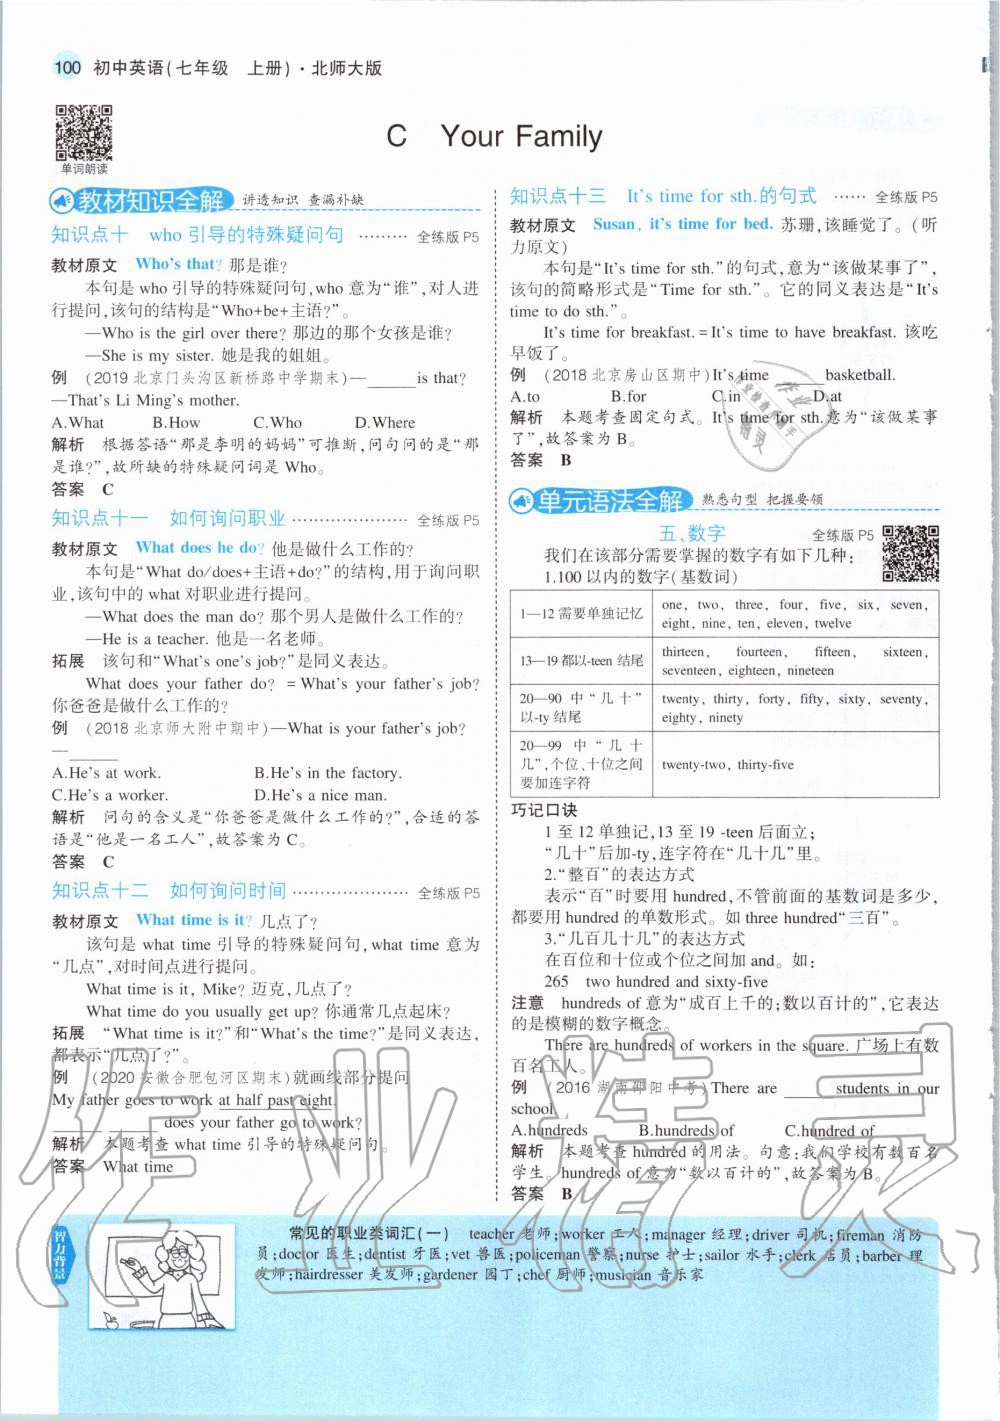 100 初中英语(七年级 上册)·北师大版
单词朗读
C Your Family
教材知识全解 讲透知识 查漏补缺
知识点十 who 引导的特殊疑问句 ……… 全练版 P5
教材原文 Who's that? 那是谁?
本句是 who 引导的特殊疑问句,who 意为“谁”,对人进
行提问,该句的结构是“Who+be+主语?”。
—Who is the girl over there? 那边的那个女孩是谁?
—She is my sister. 她是我的姐姐。
例 (2019 北京门头沟区新桥路中学期末)—______is that?
—That's Li Ming's mother.
A.What B.How C.Who D.Where
解析 根据答语“那是李明的妈妈”可推断,问句问的是“那
是谁?”,故所缺的特殊疑问词是 Who。
答案 C
知识点十一 如何询问职业 ………………… 全练版 P5
教材原文 What does he do? 他是做什么工作的?
本句是“What do/does+主语+do?”的结构,用于询问职
业,该句中的 what 对职业进行提问。
—What does the man do? 那个男人是做什么工作的?
—He is a teacher. 他是一名老师。
拓展 该句和“What's one's job?”是同义表达。
What does your father do? = What's your father's job?
你爸爸是做什么工作的?
例 (2018 北京师大附中期中)—What is your father's job?
—______
A.He's at work. B.He's in the factory.
C.He's a worker. D.He's a nice man.
解析 问句的含义是“你爸爸是做什么工作的?”,合适的答
语是“他是一名工人”,故答案为 C。
答案 C
知识点十二 如何询问时间 ………………… 全练版 P5
教材原文 What time is it? 几点了?
该句是 what time 引导的特殊疑问句,what time 意为
“几点”,对时间点进行提问。
What time is it, Mike? 迈克,几点了?
What time do you usually get up? 你通常几点起床?
拓展 “What time is it?”和“What's the time?”是同义表达,
都表示“几点了?”。
例 (2020 安徽合肥包河区期末)就画线部分提问
My father goes to work at half past eight.
______ ______ does your father go to work?
解析 本题考查 what time 引导的特殊疑问句。
答案 What time
知识点十三 It's time for sth.的句式 …… 全练版 P5
教材原文 Susan, it's time for bed. 苏珊,该睡觉了。(听
力原文)
本句是“It's time for sth.”的句式,意为“该做某事了”,
该句的简略形式是“Time for sth.”。它的同义表达是“It's
time to do sth.”。
It's time for breakfast. = It's time to have breakfast. 该吃
早饭了。
例 (2018 北京房山区期中)It's time ______basketball.
A.to B.for C.in D.at
解析 本题考查固定句式。It's time for sth.意为“该做某事
了”,故答案为 B。
答案 B
单元语法全解 熟悉句型 把握要领
五、数字 全练版 P5
我们在该部分需要掌握的数字有如下几种:
1.100 以内的数字(基数词)
1—12 需要单独记忆 one, two, three, four, five, six, seven,
eight, nine, ten, eleven, twelve
13—19 都以-teen 结尾 thirteen, fourteen, fifteen, sixteen,
seventeen, eighteen, nineteen
20—90 中“几十” twenty, thirty, forty, fifty, sixty, seventy,
以-ty 结尾 eighty, ninety
20—99 中“几十
几”,个位、十位之间 twenty-two, thirty-five
要加连字符
巧记口诀
1 至 12 单独记,13 至 19 -teen 后面立;
“几十”后加-ty,连字符在“几十几”里。
2.“整百”的表达方式
表示“百”时要用 hundred,不管前面的基数词是多少,
都要用 hundred 的单数形式。如 three hundred“三百”。
3.“几百几十几”的表达方式
在百位和十位或个位之间加 and。如:
265 two hundred and sixty-five
注意 hundreds of 意为“成百上千的;数以百计的”,它表达
的是模糊的数字概念。
There are hundreds of workers in the square. 广场上有数
百名工人。
例 (2016 湖南邵阳中考)There are ______ students in our
school.
A.hundreds B.hundreds of C.hundred of
解析 本题考查 hundred 的用法。句意:我们学校有数百名
学生。hundreds of 意为“数以百计的”,故答案为 B。
答案 B
智力背景
常见的职业类词汇(一) teacher 老师;worker 工人;manager 经理;driver 司机;fireman 消防
员;doctor 医生;dentist 牙医;vet 兽医;policeman 警察;nurse 护士;sailor 水手;clerk 店员;barber 理
发师;hairdresser 美发师;gardener 园丁;chef 厨师;musician 音乐家
作业精灵